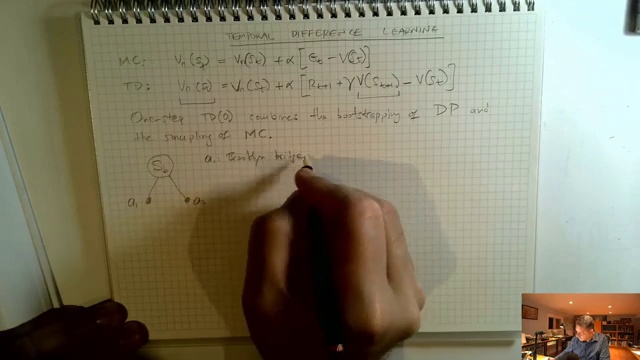 TEMPORAL DIFFERENCE LEARNING
MC: Vπ(St) = Vπ(St) + α [Gt − V(St)]
TD: Vπ(s) = Vπ(St) + α [Rt+1 + γV(St+1) − V(St)]
One-step TD(0) combines the bootstrapping of DP and
the sampling of MC.
St
a. Brooklyn bridge
a1
a2